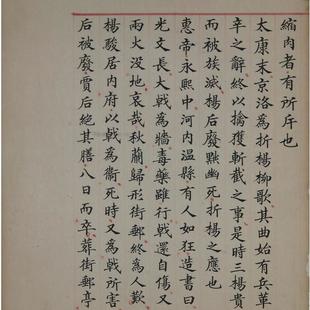 縮肉者有所斥也
太康末京洛為折楊柳歌其曲始有兵革
辛之辭終以擒獲斬截之事是時三楊貴
而被族滅楊后廢黜幽死折楊之應也
惠帝永熙中河内温縣有人如狂造書曰
光文長大戟為牆毒藥雖行戟還自傷又
兩火没地哀哉秋蘭歸形街郵終為人歎
楊駿居内府以戟為衛死時又為戟所害
后被廢賈后絶其膳八日而卒葬街郵亭